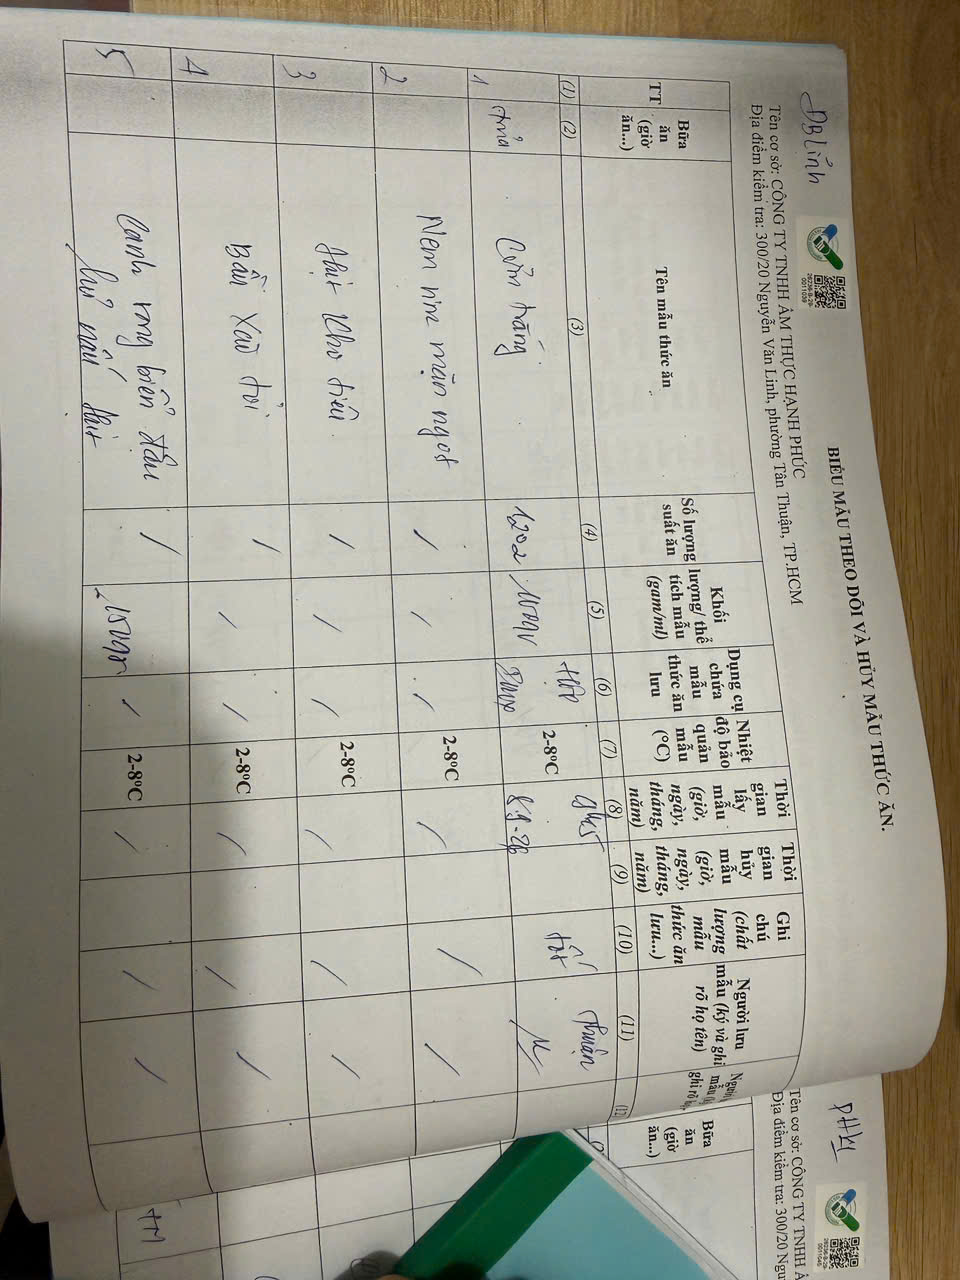 ĐB Lĩnh
26236-B-29-
0011039
BIỂU MẪU THEO DÕI VÀ HỦY MẪU THỨC ĂN.
Tên cơ sở: CÔNG TY TNHH ẨM THỰC HẠNH PHÚC
Địa điểm kiểm tra: 300/20 Nguyễn Văn Linh, phường Tân Thuận, TP.HCM
TT
Bữa ăn (giờ ăn...)
Tên mẫu thức ăn
Số lượng suất ăn
Khối lượng/ thể tích mẫu (gam/ml)
Dụng cụ chứa mẫu thức ăn lưu
Nhiệt độ bảo quản mẫu (°C)
Thời gian lấy mẫu (giờ, ngày, tháng, năm)
Thời gian hủy mẫu (giờ, ngày, tháng, năm)
Ghi chú (chất lượng mẫu thức ăn lưu...)
Người lưu mẫu (ký và ghi rõ họ tên)
(1) (2) (3) (4) (5) (6) (7) (8) (9) (10) (11) (12)
1 trưa Cơm trắng 1202 100gr Hộp 2-8°C 9h15 tốt Thuận
2 Nem nướng mặn ngọt / / / 2-8°C / / /
3 thịt kho tiêu / / / 2-8°C / / /
4 Bầu xào tỏi / / / 2-8°C / / /
5 Canh rong biển đậu hủ nấu thịt / 150gr / 2-8°C / / /
PHK1
Tên cơ sở: CÔNG TY TNHH
Địa điểm kiểm tra: 300/20
Bữa ăn (giờ ăn...)